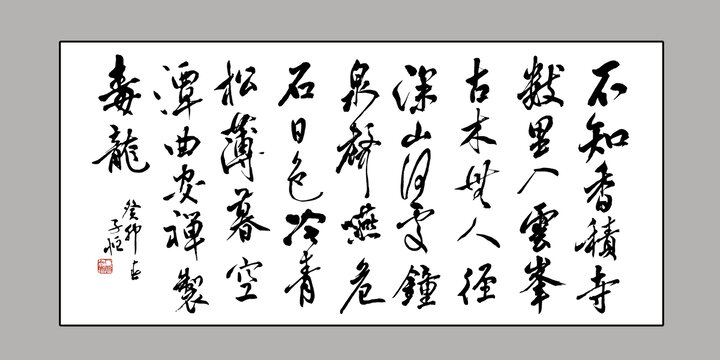 不知香積寺
數里入雲峯
古木無人徑
深山何處鐘
泉聲嚥危
石日色冷青
松薄暮空
潭曲安禪製
毒龍
癸卯
子恒